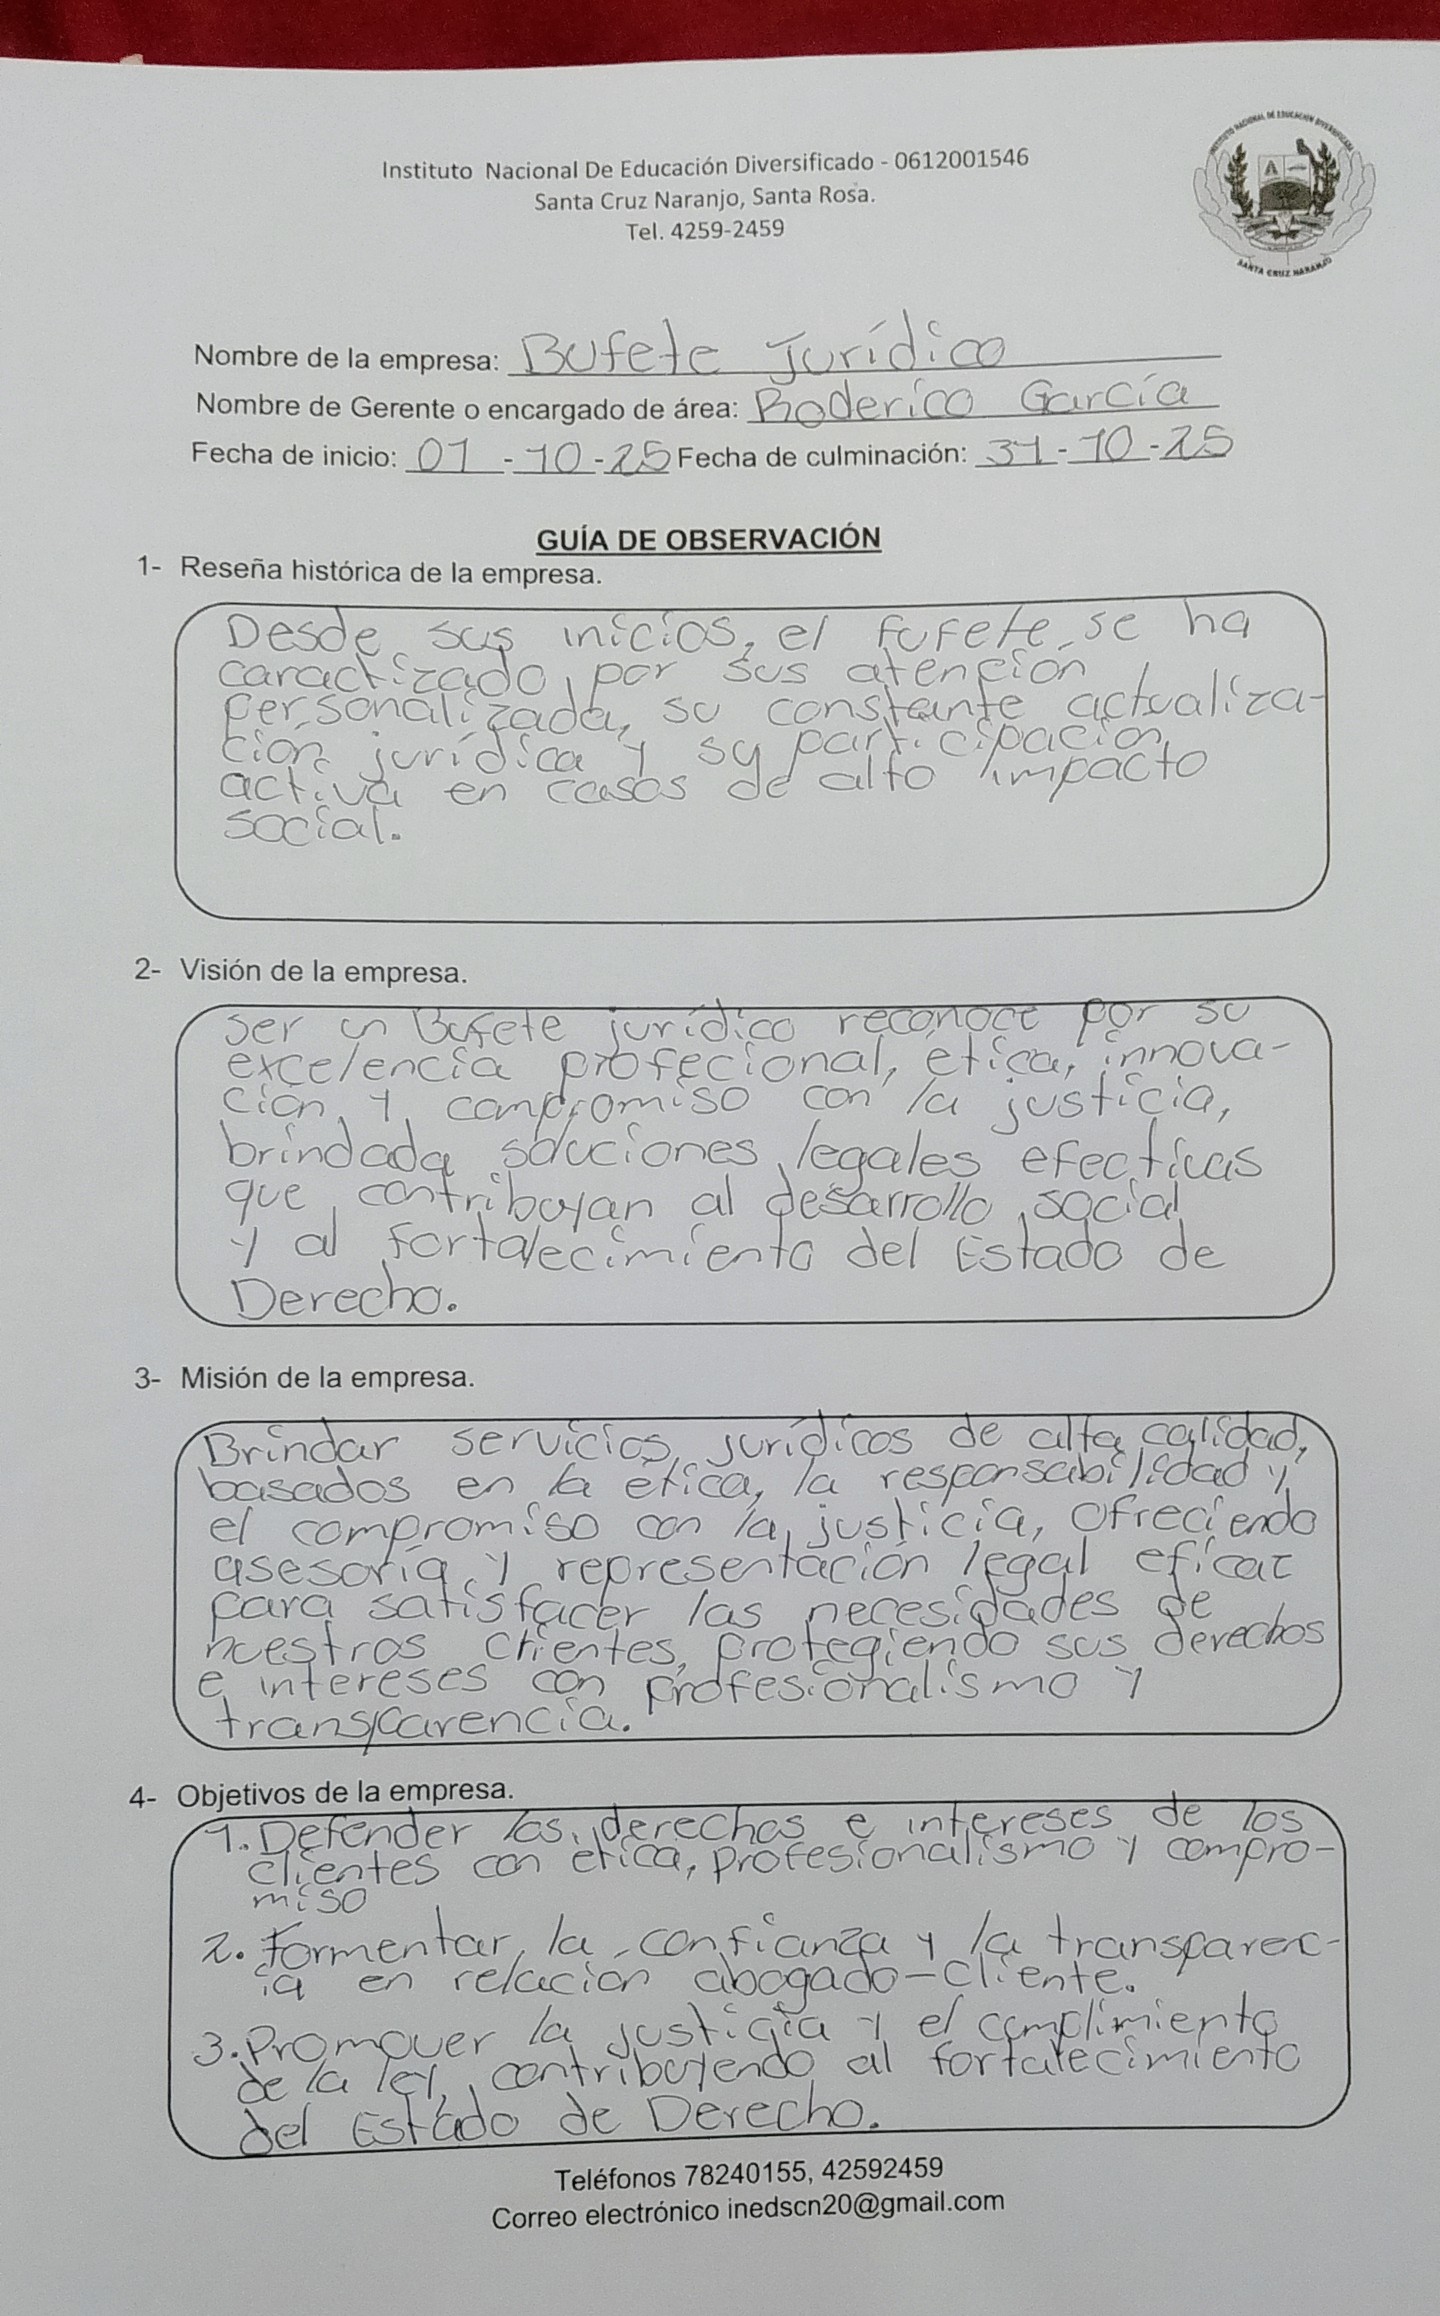 INSTITUTO NACIONAL DE EDUCACIÓN DIVERSIFICADA
SANTA CRUZ NARANJO
Instituto Nacional De Educación Diversificado - 0612001546
Santa Cruz Naranjo, Santa Rosa.
Tel. 4259-2459
Nombre de la empresa: Bufete Jurídico
Nombre de Gerente o encargado de área: Roderico García
Fecha de inicio: 01 - 10 - 25 Fecha de culminación: 31 - 10 - 25
GUÍA DE OBSERVACIÓN
1- Reseña histórica de la empresa.
Desde sus inicios, el fufete se ha
caractizado por sus atención
personalizada, su constante actualiza-
ción jurídica y su participación
activa en casos de alto impacto
social.
2- Visión de la empresa.
Ser un Bufete jurídico reconoce por su
excelencia profecional, ética, innova-
ción y compromiso con la justicia,
brindada soluciones legales efectivas
que contribuyan al desarrollo social
y al fortalecimiento del Estado de
Derecho.
3- Misión de la empresa.
Brindar servicios jurídicos de alta calidad,
basados en la ética, la responsabilidad y
el compromiso con la justicia, ofreciendo
asesoría y representación legal eficaz
para satisfacer las necesidades de
nuestros clientes, protegiendo sus derechos
e intereses con profesionalismo y
transparencia.
4- Objetivos de la empresa.
1. Defender los derechos e intereses de los
clientes con ética, profesionalismo y compro-
miso
2. Formentar la confianza y la transparenc-
ia en relación abogado-cliente.
3. Promover la justicia y el cumplimiento
de la ley, contribuyendo al fortalecimiento
del Estado de Derecho.
Teléfonos 78240155, 42592459
Correo electrónico inedscn20@gmail.com